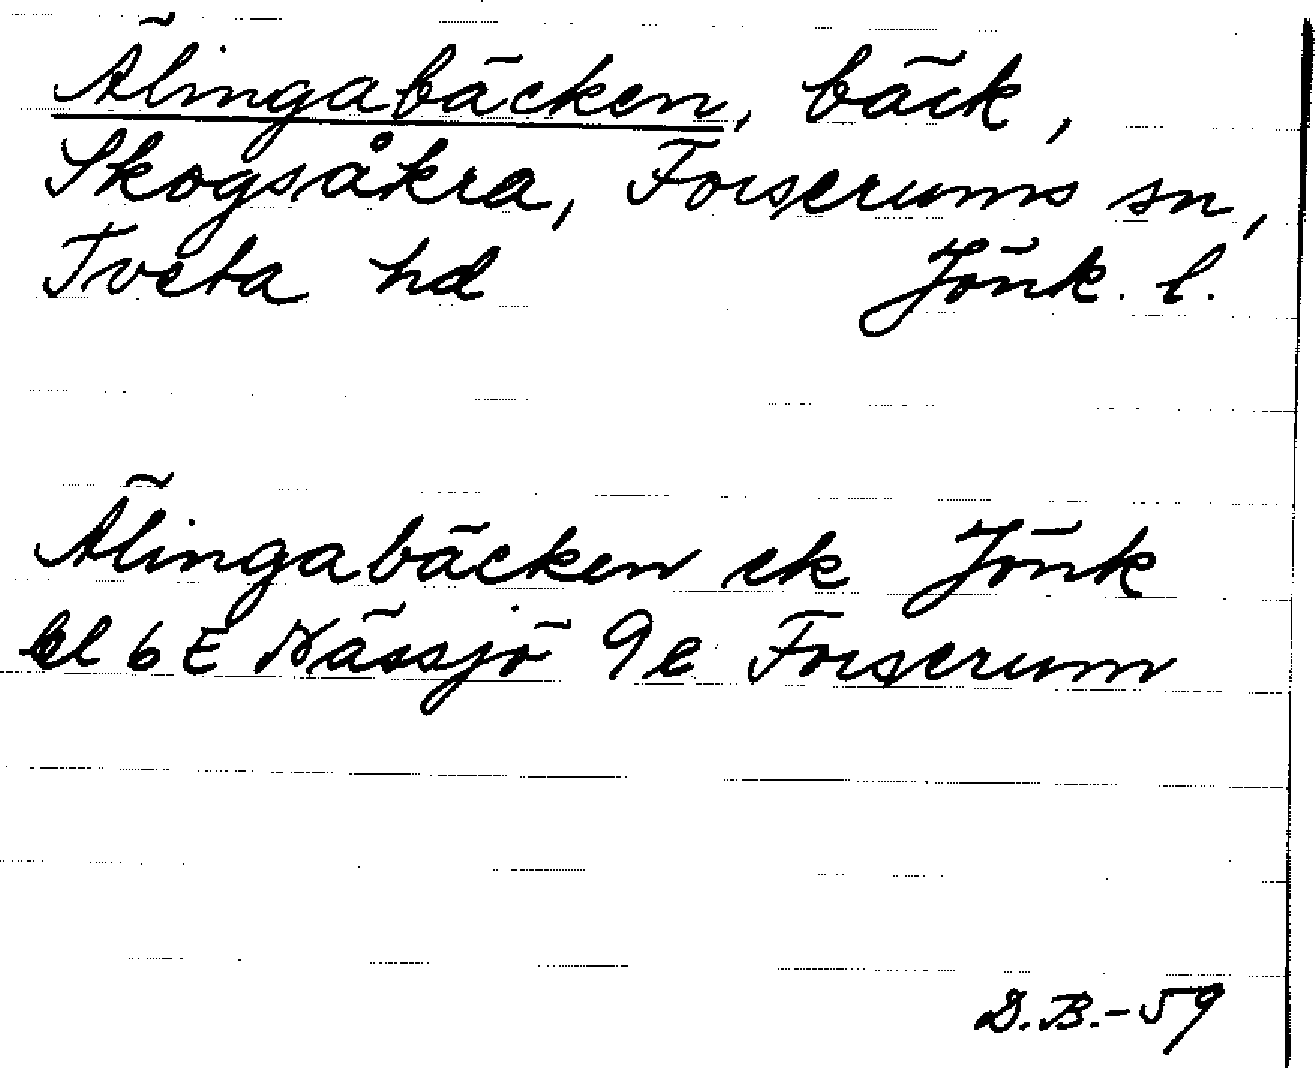 Älingabäcken, bäck,
Skogsåkra, Forserums sn,
Tveta hd Jönk. l.
Älingabäcken ek Jönk
bl 6E Nässjö 9e Forserum
D.B.-59